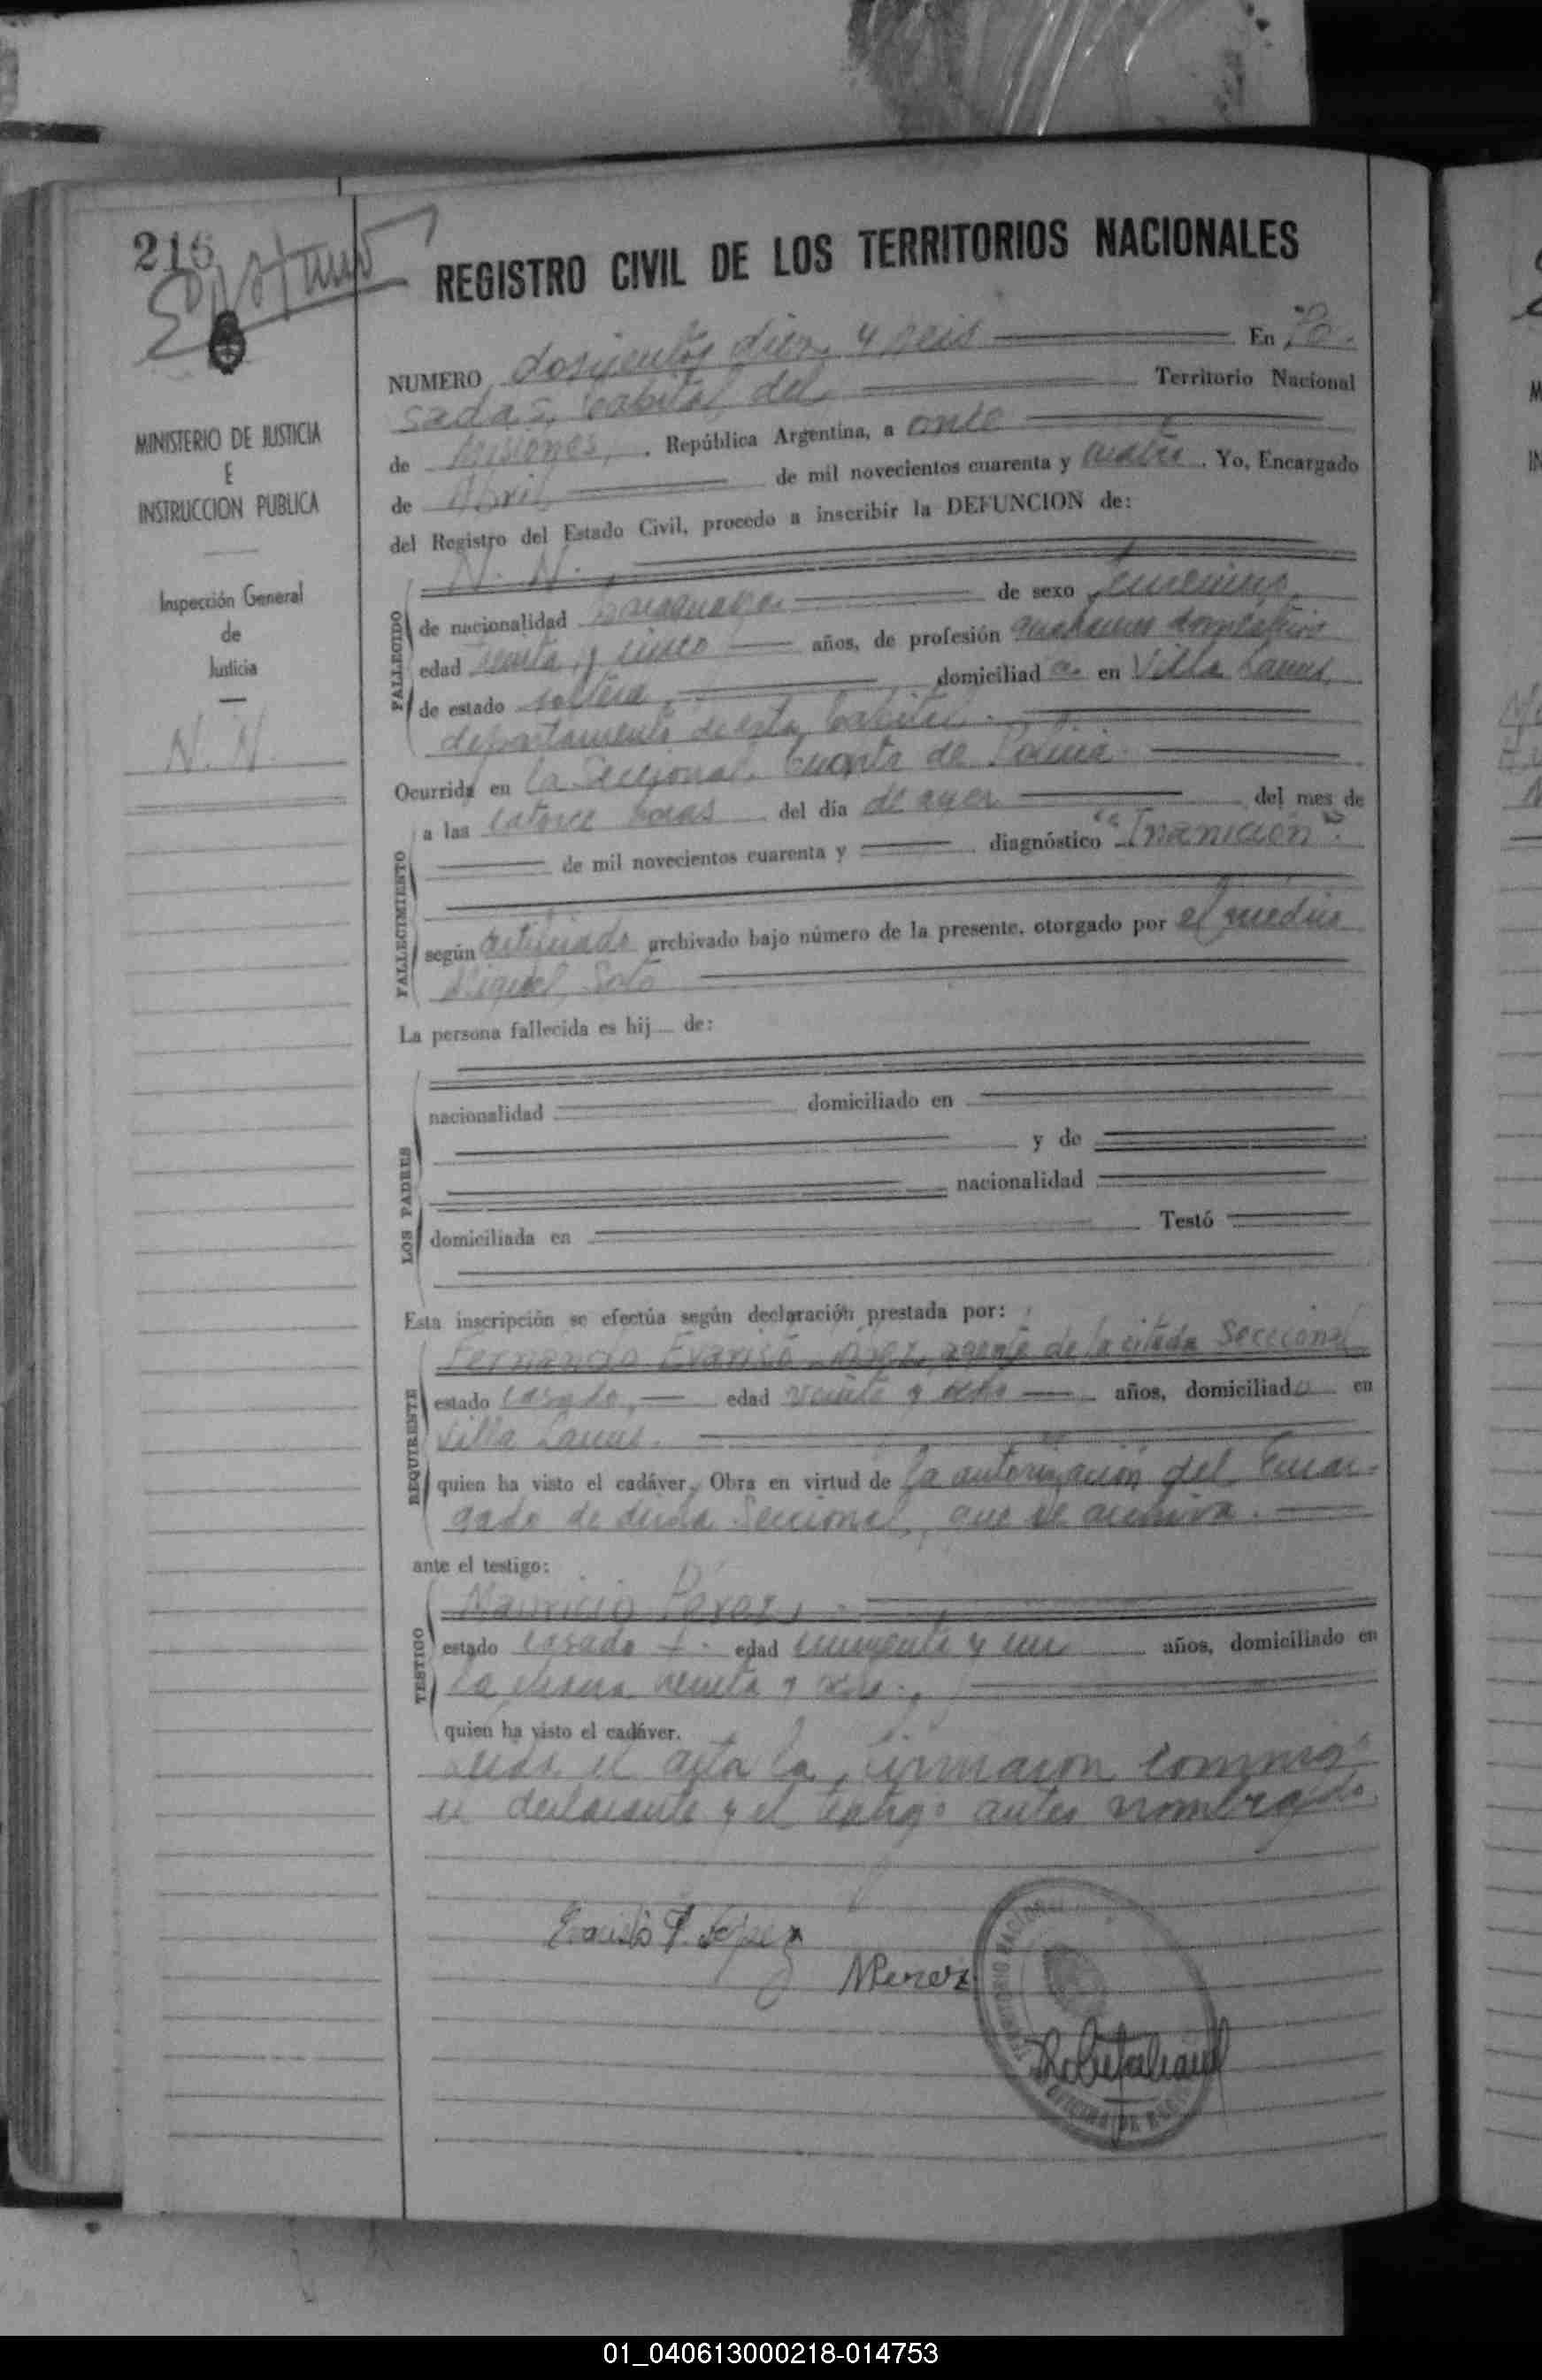 216
REGISTRO CIVIL DE LOS TERRITORIOS NACIONALES
MINISTERIO DE JUSTICIA
E
INSTRUCCION PUBLICA
Inspección General
de
Justicia
N. N.
NUMERO doscientos diez y seis En Po-
sadas, Capital del Territorio Nacional
de Misiones, República Argentina, a once
de Abril de mil novecientos cuarenta y cuatro. Yo, Encargado
del Registro del Estado Civil, procedo a inscribir la DEFUNCION de:
FALLECIDO
N. N.
de nacionalidad paraguaya de sexo femenino,
edad y cinco años, de profesión quehaceres domésticos
de estado soltera, domiciliad a en Villa Lanus,
departamento de esta Capital.
Ocurrida en la Seccional Cuarta de Policia
FALLECIMIENTO
a las catorce horas del día de ayer del mes de
de mil novecientos cuarenta y diagnóstico "Inanición".
según certificado archivado bajo número de la presente, otorgado por el médico
Miguel Soto
La persona fallecida es hij de:
LOS PADRES
nacionalidad domiciliado en
y de
nacionalidad
domiciliada en Testó
Esta inscripción se efectúa según declaración prestada por:
REQUIRENTE
Fernando Evaristo López, agente de la citada Seccional
estado casado, edad veinte y ocho años, domiciliado en
Villa Lanus.
quien ha visto el cadáver. Obra en virtud de la autorización del Encar-
gado de dicha Seccional, que se archiva.
ante el testigo:
TESTIGO
Mauricio Perez,
estado casado edad cincuenta y un años, domiciliado en
la chacra veinte y
quien ha visto el cadáver.
Leída el acta la firmaron conmigo
el declarante y el testigo antes nombrado.
Evaristo F. López
MPerez
TERRITORIO NACIONAL
01_040613000218-014753